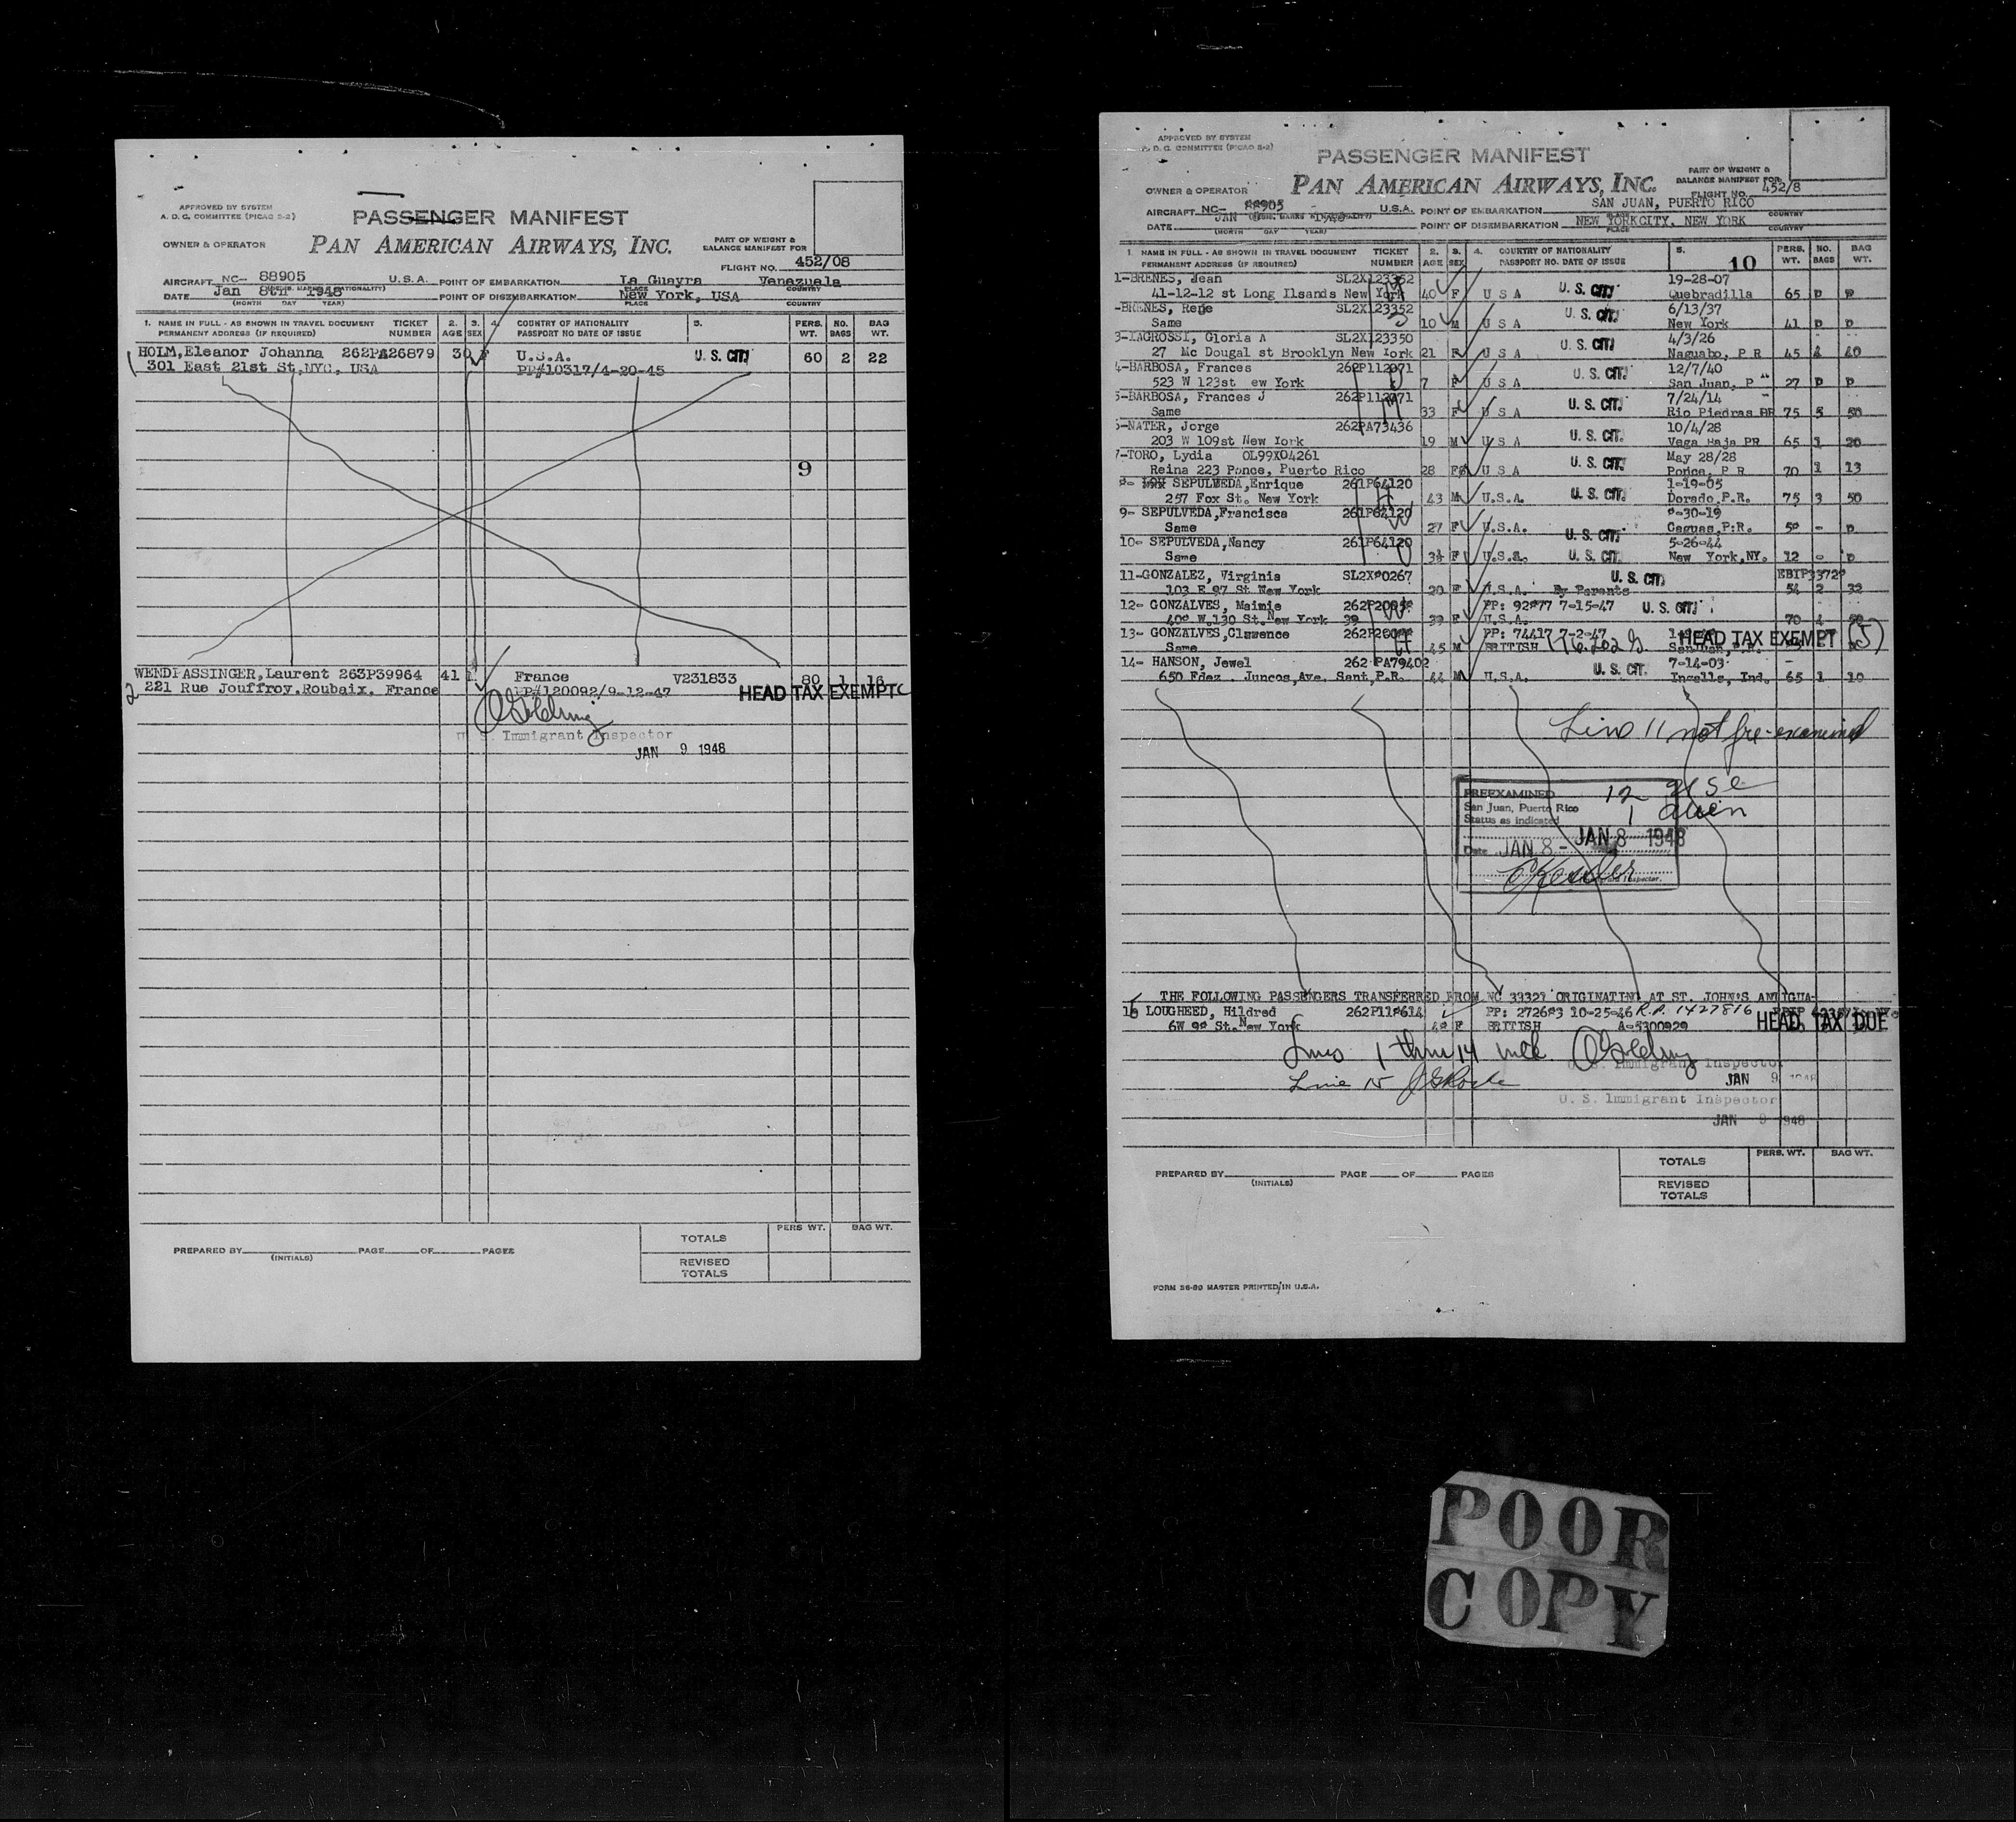 APPROVED BY SYSTEM
A. D. C. COMMITTEE (PICAO S-2)
PASSENGER MANIFEST
OWNER & OPERATOR PAN AMERICAN AIRWAYS, INC.
PART OF WEIGHT & BALANCE MANIFEST FOR
FLIGHT NO. 452/08
AIRCRAFT NC- 88905 U.S.A. POINT OF EMBARKATION La Guayra Venezuela
DATE Jan 8th 1948 POINT OF DISEMBARKATION New York, USA
(MONTH DAY YEAR) PLACE COUNTRY
1. NAME IN FULL - AS SHOWN IN TRAVEL DOCUMENT TICKET 2. 3. 4. COUNTRY OF NATIONALITY 5. PERS. NO. BAG
PERMANENT ADDRESS (IF REQUIRED) NUMBER AGE SEX PASSPORT NO DATE OF ISSUE WT. BAGS WT.
HOLM, Eleanor Johanna 262PA26879 30 F U.S.A. U. S. CIT. 60 2 22
301 East 21st St, NYC, USA PP#10317/4-20-45
9
WENDPASSINGER, Laurent 263P39964 41 France V231833 80 1 16
2 221 Rue Jouffroy. Roubaix. France PP#120092/9-12-47 HEAD TAX EXEMPT
U. S. Immigrant Inspector
JAN 9 1948
PERS WT. BAG WT.
TOTALS
PREPARED BY PAGE OF PAGES
(INITIALS)
REVISED TOTALS
APPROVED BY SYSTEM
A. D. C. COMMITTEE (PICAO S-2)
PASSENGER MANIFEST
OWNER & OPERATOR PAN AMERICAN AIRWAYS, INC.
PART OF WEIGHT & BALANCE MANIFEST FOR
FLIGHT NO. 452/8
AIRCRAFT NC- 88905 U.S.A. POINT OF EMBARKATION SAN JUAN, PUERTO RICO
DATE JAN 1948 POINT OF DISEMBARKATION NEW YORKCITY, NEW YORK
(MONTH DAY YEAR) PLACE COUNTRY
1. NAME IN FULL - AS SHOWN IN TRAVEL DOCUMENT TICKET 2. 3. 4. COUNTRY OF NATIONALITY 5. PERS. NO. BAG
PERMANENT ADDRESS (IF REQUIRED) NUMBER AGE SEX PASSPORT NO. DATE OF ISSUE 10 WT. BAGS WT.
1-BRENES, Jean SL2X123352 U. S. CIT. 19-28-07
41-12-12 st Long Ilsands New York 40 F U S A Quebradilla 65 p p
-BRENES, Rene SL2X123352 U. S. CIT. 6/13/37
Same 10 M U S A New York 41 p p
3-LAGROSSI, Gloria A SL2X123350 U. S. CIT. 4/3/26
27 Mc Dougal st Brooklyn New York 21 F U S A Naguabo, P R 45 4 40
4-BARBOSA, Frances 262P112071 U. S. CIT. 12/7/40
523 W 123st ew York 7 F U S A San Juan, P 27 p p
5-BARBOSA, Frances J 262P112071 U. S. CIT. 7/24/14
Same 33 F U S A Rio Piedras PR 75 5 50
-NATER, Jorge 262PA73436 U. S. CIT. 10/4/28
203 W 109st New York 19 M U S A Vega Baja PR 65 1 20
7-TORO, Lydia OL99X04261 U. S. CIT. May 28/28
Reina 223 Ponce, Puerto Rico 28 F U S A Ponce, P R 70 1 13
SEPULVEDA, Enrique 261P64120 U. S. CIT. 1-19-05
257 Fox St. New York 43 M U.S.A. Dorado, P.R. 75 3 50
9- SEPULVEDA, Francisca 261P64120 U. S. CIT. -30-19
Same 27 F U.S.A. Caguas, P.R. -
10- SEPULVEDA, Nancy 261P64120 U. S. CIT. 5-26-44
Same F U.S.A. New York, NY. 12 - p
11-GONZALEZ, Virginia U. S. CIT.
103 E 97 St New York 20 F U.S.A. By Parents 54 2 32
12- GONZALVES, Maimie U. S. CIT.
W. 130 St. New York 39 F U.S.A. 7-15-47 70 4
13- GONZALVES, Clarence PP: 74417 7-2-47 HEAD TAX EXEMPT
Same 45 M BRITISH
14- HANSON, Jewel 262 PA79402 U. S. CIT. 7-14-03
650 Fdez. Juncos, Ave. Sant, P.R. 44 U.S.A. Ingalls, Ind. 65 1 10
Line 11 not pre-examined
PREEXAMINED 12 USC
San Juan, Puerto Rico 1 alien
Status as indicated
Date JAN 8 - JAN 8 1948
THE FOLLOWING PASSENGERS TRANSFERRED FROM NC ORIGINATING AT ST. JOHN'S ANTIGUA
LOUGHEED, Hildred R.P. 1427816
St. New York F BRITISH A-5300929 HEAD TAX DUE
Lines 1 thru 14 incl
U. S. Immigrant Inspector
Line 15 JAN 9 1948
U. S. Immigrant Inspector
JAN 9 1948
PERS. WT. BAG WT.
TOTALS
PREPARED BY PAGE OF PAGES
(INITIALS)
REVISED TOTALS
FORM 36-80 MASTER PRINTED IN U.S.A.
POOR
COPY